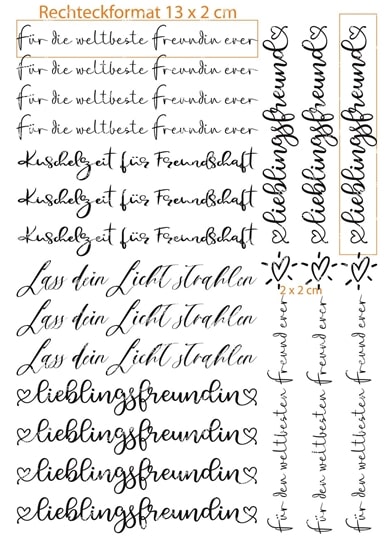 Rechteckformat 13 x 2 cm
Für die weltbeste Freundin ever
Für die weltbeste Freundin ever
Für die weltbeste Freundin ever
Für die weltbeste Freundin ever
Kuschelzeit für Freundschaft
Kuschelzeit für Freundschaft
Kuschelzeit für Freundschaft
Lass dein Licht strahlen
Lass dein Licht strahlen
Lass dein Licht strahlen
lieblingsfreundin
lieblingsfreundin
lieblingsfreundin
lieblingsfreundin
lieblingsfreund
lieblingsfreund
lieblingsfreund
2 x 2 cm
für den weltbesten Freund ever
für den weltbesten Freund ever
für den weltbesten Freund ever